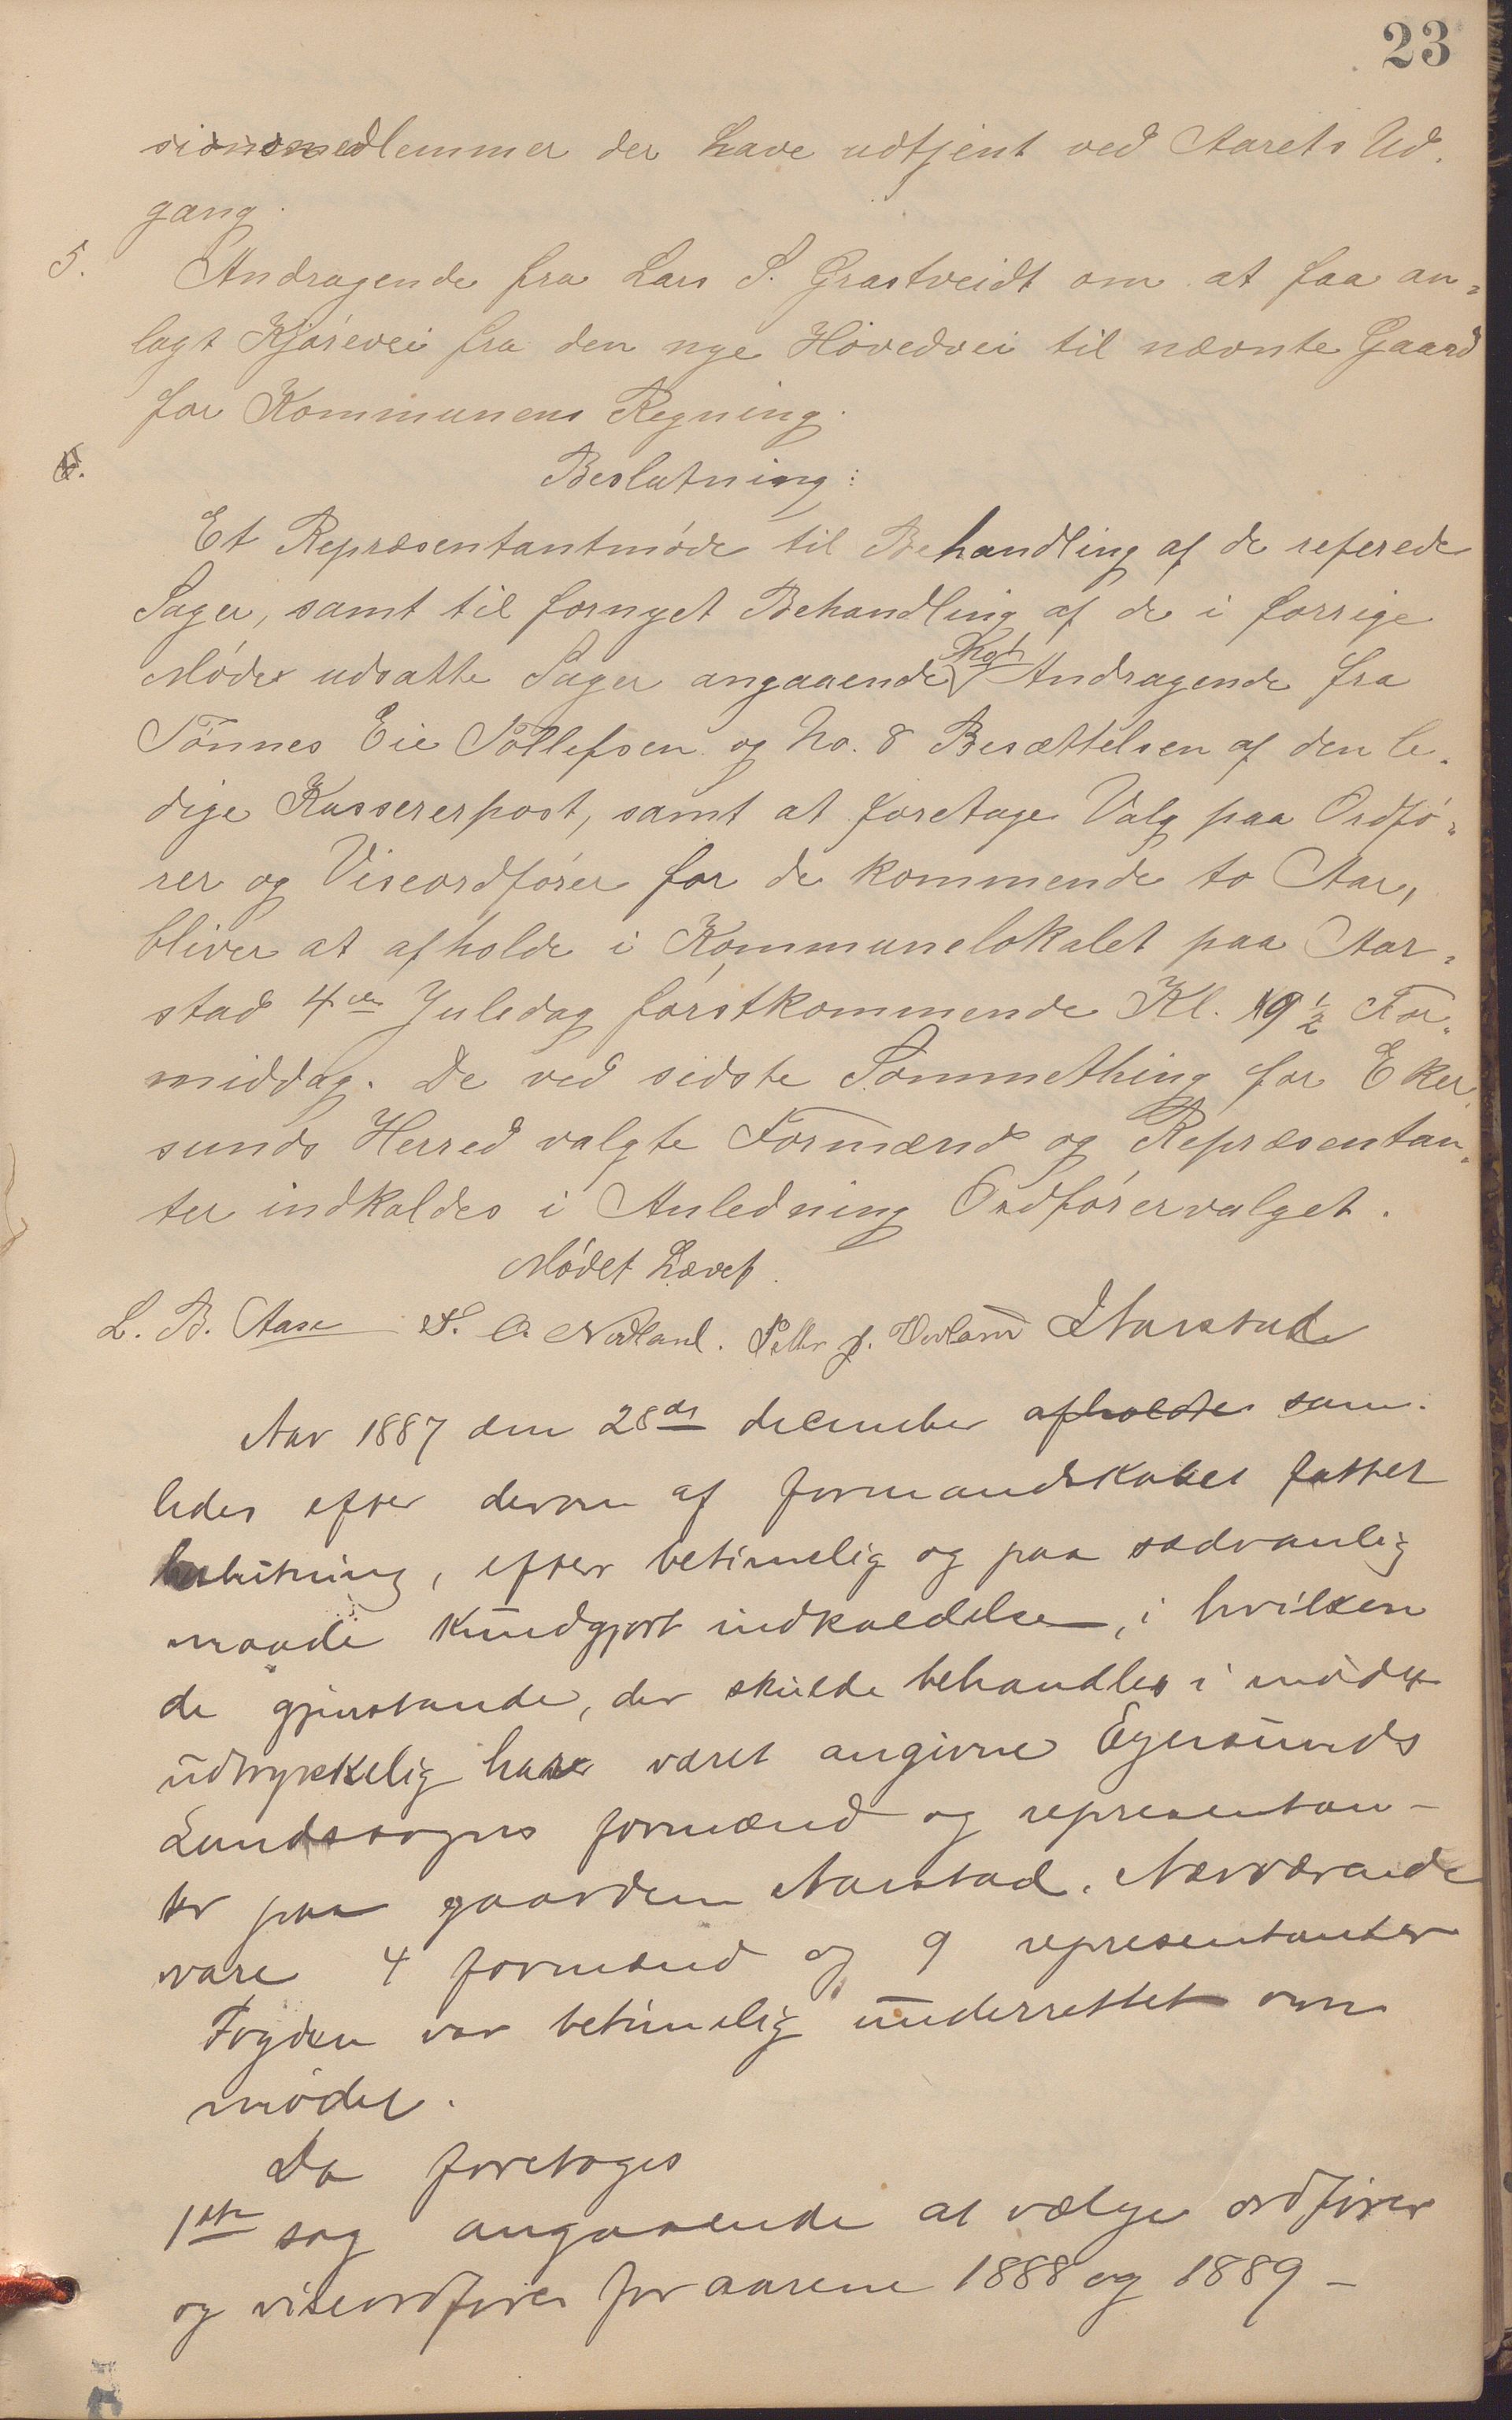 23
sionsmedlemmer der have udtjent ved Aarets Ud-
gang.
5. Andragende fra Lars S. Grastveidt om at faa an-
lagt Kjørevei fra den nye Hovedvei til nævnte Gaard
for Kommunens Regning.
6. Beslutning:
Et Repræsentantmøde til Behandling af de referede
Sager, samt til fornyet Behandling af de i forrige
Møde udsatte Sager angaaende Andragende fra
Tønnes Eie Tollefsen og No. 8 Besættelsen af den le-
dige Kassererpost, samt at foretage Valg paa Ordfø-
rer og Viseordfører for de kommende to Aar,
bliver at afholde i Kommunelokalet paa Aar-
stad 4de Juledag førstkommende Kl. 9 1/2 For-
middag. De ved sidste Sommething for Eker-
sunds Herred valgte Formænd og Repræsentan-
ter indkaldes i Anledning Ordførervalget.
Mødet hævet.
L. B. Aase A. Nodland. Peder J. Aarstad
Aar 1887 den 28de december afholdtes sam-
ledes efter derom af formandskabet fattet
beslutning, efter betimelig og paa sædvanlig
maade kundgjort indkaldelse, i hvilken
de gjenstande, der skulde behandles i mødet
udtrykkelig have været angivne Egersunds
Landsogns formænd og representan-
ter paa gaarden Aarstad. Nærværende
vare 4 formænd og 9 representanter
Fogden var betimelig underrettet om
mødet.
Da foretoges
1ste sag angaaende at vælge ordfører
og viseordfører for aarene 1888 og 1889 -